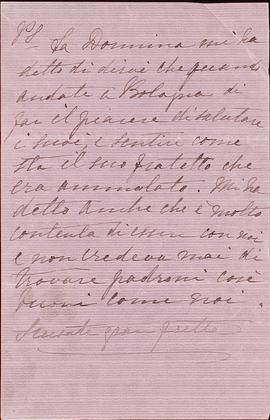 PS. La Donnina mi ha
detto di dirvi che quando
andate a Bologna di
far il piacere di salutare
i suoi, e sentire come
sta il suo fratello che
era ammalato. Mi ha
detto anche che è molto
contenta di essere con noi
e non credeva mai di
trovare padroni così
buoni come noi.
Scusate gran fretta